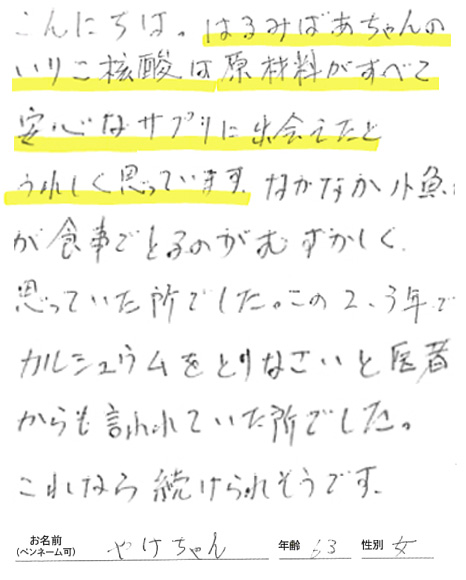 こんにちは。はるみばあちゃんの
いりこ核酸は原材料がすべて
安心なサプリに出会えたと
うれしく思っています。なかなか小魚
が食事でとるのがむずかしく
思っていた所でした。この2、3年で
カルシュウムをとりなさいと医者
からも言われていた所でした。
これなら続けられそうです。
お名前 やけちゃん 年齢 63 性別 女
(ペンネーム可)